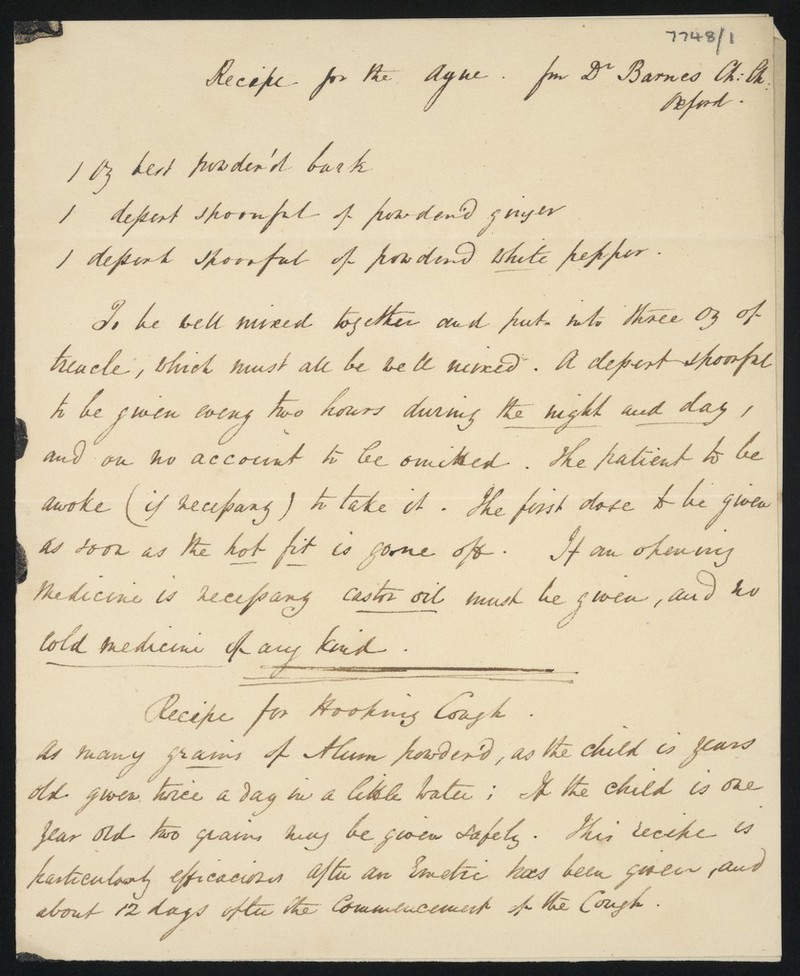 7748/1
Recipe for the Ague. fm Dr Barnes Ch: Ch:
Oxford.
1 Oz best powder'd bark
1 deſsert spoonful of powder'd ginger
1 deſsert spoonful of powder'd white pepper.
To be well mixed together and put into three Oz of
treacle, which must all be well mixed. A deſsert spoonful
to be given every two hours during the night and day,
and on no account to be omitted. The patient to be
awoke (if neceſsary) to take it. The first dose to be given
as soon as the hot fit is gone off. If an opening
medicine is neceſsary castor oil must be given, and no
cold medicine of any kind.
Recipe for Hooping Cough.
As many grains of Alum powder'd, as the child is years
old given twice a day in a little water; If the child is one
year old two grains may be given safely. This recipe is
particularly efficacious after an Emetic has been given, and
about 12 days after the Commencement of the Cough.